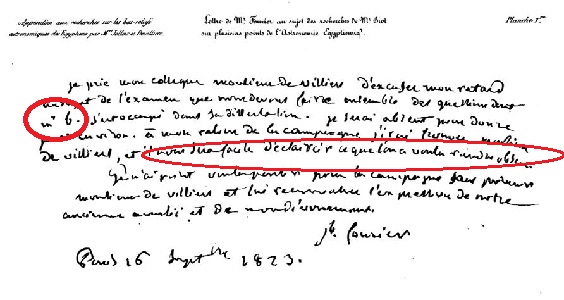 Appendice aux recherches sur les bas-reliefs
astronomiques des Egyptiens par Mrs Jollois et Devilliers
Lettre de Mr Fourier au sujet des recherches de Mr Biot
sur plusieurs points de l'Astronomie Egyptienne.
Planche 1re
je prie mon collegue monsieur de villiers d'excuser mon retard
au sujet de l'examen que nous devons faire ensemble des questions dont
mr b. s'est occupé dans sa dissertation. je serai absent pour douze
jours environ. à mon retour de la campagne j'irai trouver
de villiers, et il nous sera facile d'éclaircir ce que l'on a voulu rendre obscur
je n'ai point voulu partir pour la campagne sans prévenir
monsieur de villiers et lui renouveller l'expression de notre
ancienne amitié et de mon dévouement.
jh fourier
Paris 16 1823.